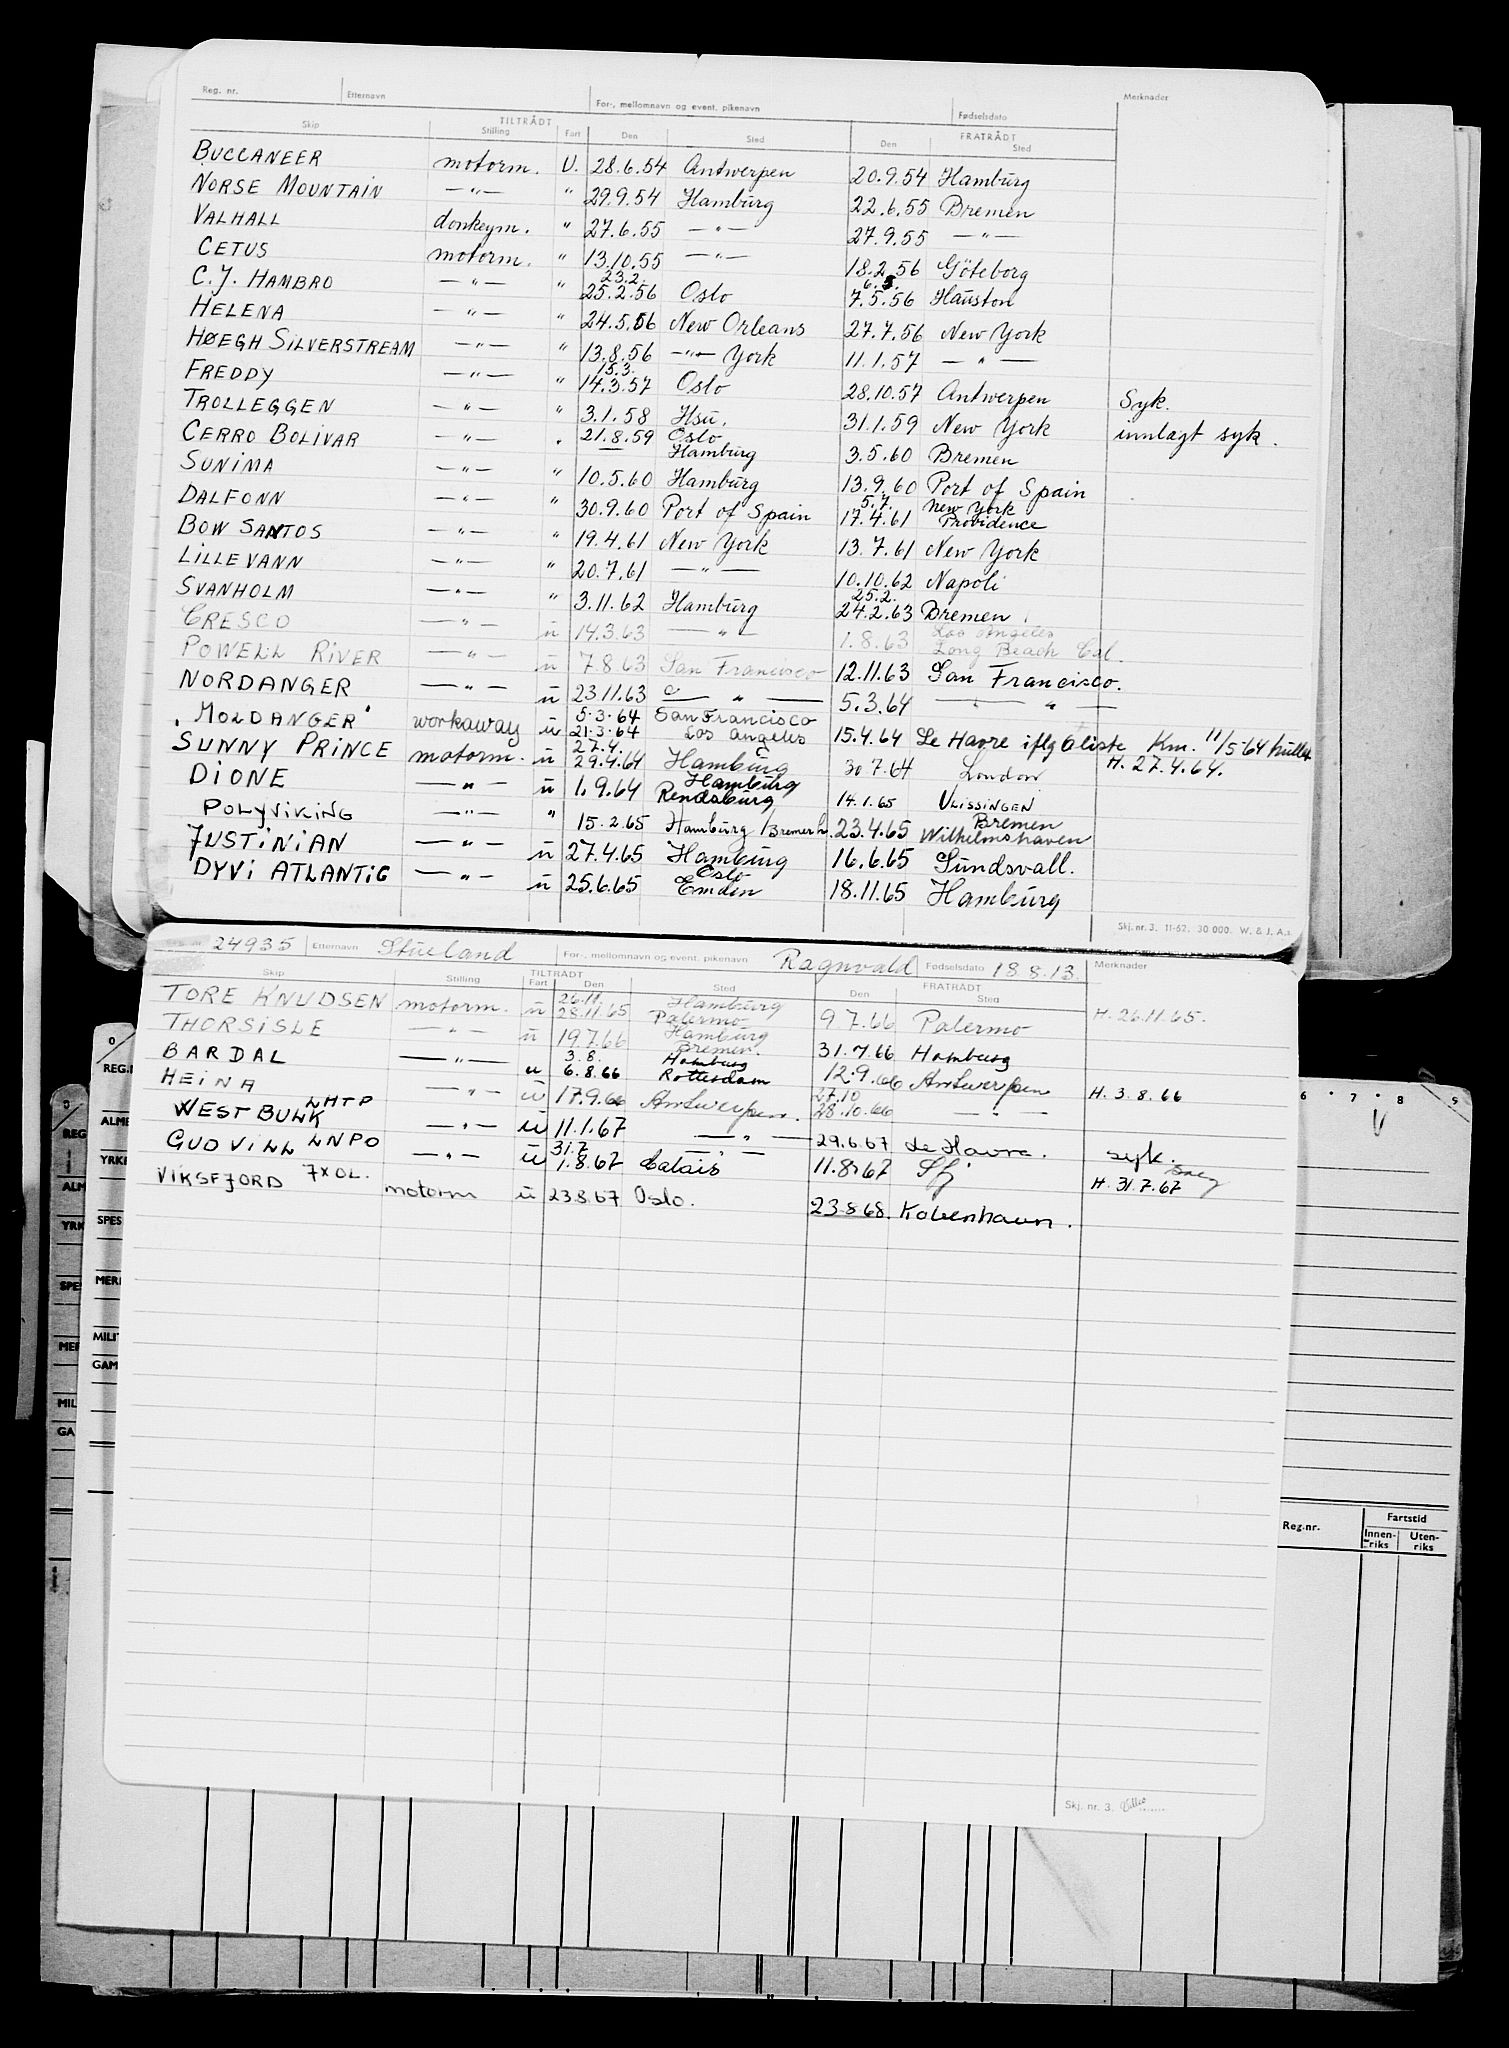 Reg. nr. Etternavn For-, mellomnavn og event. pikenavn Fødselsdato Merknader
TILTRÅDT FRATRÅDT
Skip Stilling Fart Den Sted Den Sted
BUCCANEER motorm. U. 28.6.54 Antwerpen 20.9.54 Hamburg
NORSE MOUNTAIN —"— " 29.9.54 Hamburg 22.6.55 Bremen
VALHALL donkeym. " 27.6.55 —"— 27.9.55 —"—
CETUS motorm. " 13.10.55 —"— 18.2.56 Göteborg
23.2. 6.5.
C.J. HAMBRO —"— " 25.2.56 Oslo 7.5.56 Hauston
HELENA —"— " 24.5.56 New Orleans 27.7.56 New York
HØEGH SILVERSTREAM —"— " 13.8.56 —"— York 11.1.57 —"—
15.3.
FREDDY —"— " 14.3.57 Oslo 28.10.57 Antwerpen Syk.
TROLLEGGEN —"— " 3.1.58 Hsu. 31.1.59 New York innlagt syk.
CERRO BOLIVAR —"— " 21.8.59 Oslo 3.5.60 Bremen
— Hamburg
SUNIMA —"— " 10.5.60 Hamburg 13.9.60 Port of Spain
5.7. New York
DALFONN —"— " 30.9.60 Port of Spain 17.4.61 Providence
BOW SANTOS —"— " 19.4.61 New York 13.7.61 New York
LILLEVANN —"— " 20.7.61 —"— 10.10.62 Napoli
25.2.
SVANHOLM —"— " 3.11.62 Hamburg 24.2.63 Bremen
Los Angeles
CRESCO —"— ū 14.3.63 —"— 1.8.63 Long Beach Cal.
POWELL RIVER —"— ū 7.8.63 San Francisco 12.11.63 San Francisco.
NORDANGER —"— ū 23.11.63 —"— 5.3.64 —"—
5.3.64 San Francisco
"MOLDANGER" workaway ū 21.3.64 Los Angeles 15.4.64 Le Havre iflg bliste Km. 11/5-64 hullet
27.4.
SUNNY PRINCE motorm. ū 29.4.64 Hamburg 30 7.64 London H. 27.4.64.
Hamburg
DIONE —"— ū 1.9.64 Rendsburg 14.1.65 VLISSINGEN
Bremen
POLYVIKING —"— " 15.2.65 Hamburg/Bremerh. 23.4.65 Wilhelmshaven
JUSTINIAN —"— ū 27.4.65 Hamburg 16.6.65 Sundsvall.
Oslo
DYVI ATLANTIC —"— ū 25.6.65 Emden 18.11.65 Hamburg
Skj. nr. 3. 11-62. 30 000. W. & J. A.s
24935 Etternavn Stueland For-, mellomnavn og event. pikenavn Ragnvald Fødselsdato 18.8.13. Merknader
TILTRÅDT FRATRÅDT
Skip Stilling Fart Den Sted Den Sted
26.11. Hamburg
TORE KNUDSEN motorm. ū 28.11.65 Palermo 9 7.66 Palermo H. 26.11.65.
Hamburg
THORSISLE —"— ū 19.7.66 Bremen. 31.7.66 Hamburg
3.8. Hamburg
BARDAL —"— u 6.8.66 Rotterdam 12.9.66 Antwerpen H. 3.8.66
27.10
HEINA —"— ū 17.9.66 Antwerpen. 28.10.66 —"—
WEST BULK LHTP —"— ū 11.1.67 —"— 29.6.67 Le Havre. syk.
31.7 —"—
GUDVILL LNPO —"— ū 1.8.67 Calais 11.8.67 Sfj H. 31.7.67
VIKSFJORD JXOL. motorm ū 23.8.67 Oslo. 23.8.68. København.
Skj. nr. 3.
REG.
ALM
YRK
SPE
MER
MIL
GA
REG.N
ALME
YRKE
SPES
MERI
MILIT
GAM
6 • 7 • 8 9
Reg.nr. Fartstid
Innen-riks Uten-riks